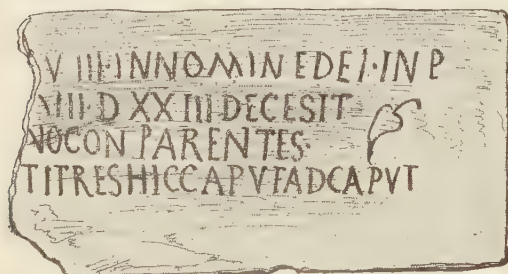 V III·INNOMINEDEI·IN P
VIII·D XXIII·DECESIT
NOCON PARENTES·
TITRESHICCAPVTADCAPVT